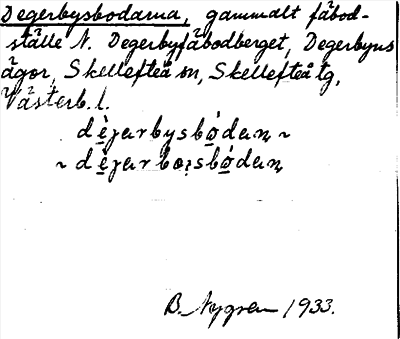 Degerbysbodarna, gammalt fäbod-
ställe N. Degerbyfäbodberget, Degerbyns
ägor, Skellefteå sn, Skellefteå tg,
Västerb. l.
dè̱jarbysbo̱̍daṇ ~
~ dè̱jarbo̱ṣsbo̱̍daṇ
B. Nygren 1933.